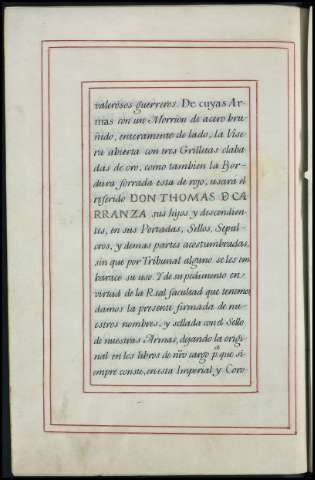 valerosos guerreros. De cuyas Ar-
mas con un Morrion de acero bru
ñido, enteramente de lado, la Vise
ra abierta con tres Grilletas claba
das de oro, como tambien la Bor-
dura forrada esta de rojo, usara el
referido DON THOMAS D CA
RRANZA sus hijos y descendien
tes, en sus Portadas, Sellos, Sepul
cros, y demas partes acostumbradas,
sin que por Tribunal alguno se les em
barace su uso. Y de su pedimento en
virtud de la Rl̃al facultad que tenemos
damos la presente firmada de nu-
estros nombres, y sellada con el Sello
de nuestras Armas, dejando la origi-
nal en los libros de nr̃o cargo p.ª que si-
empre conste, en esta Imperial y Coro